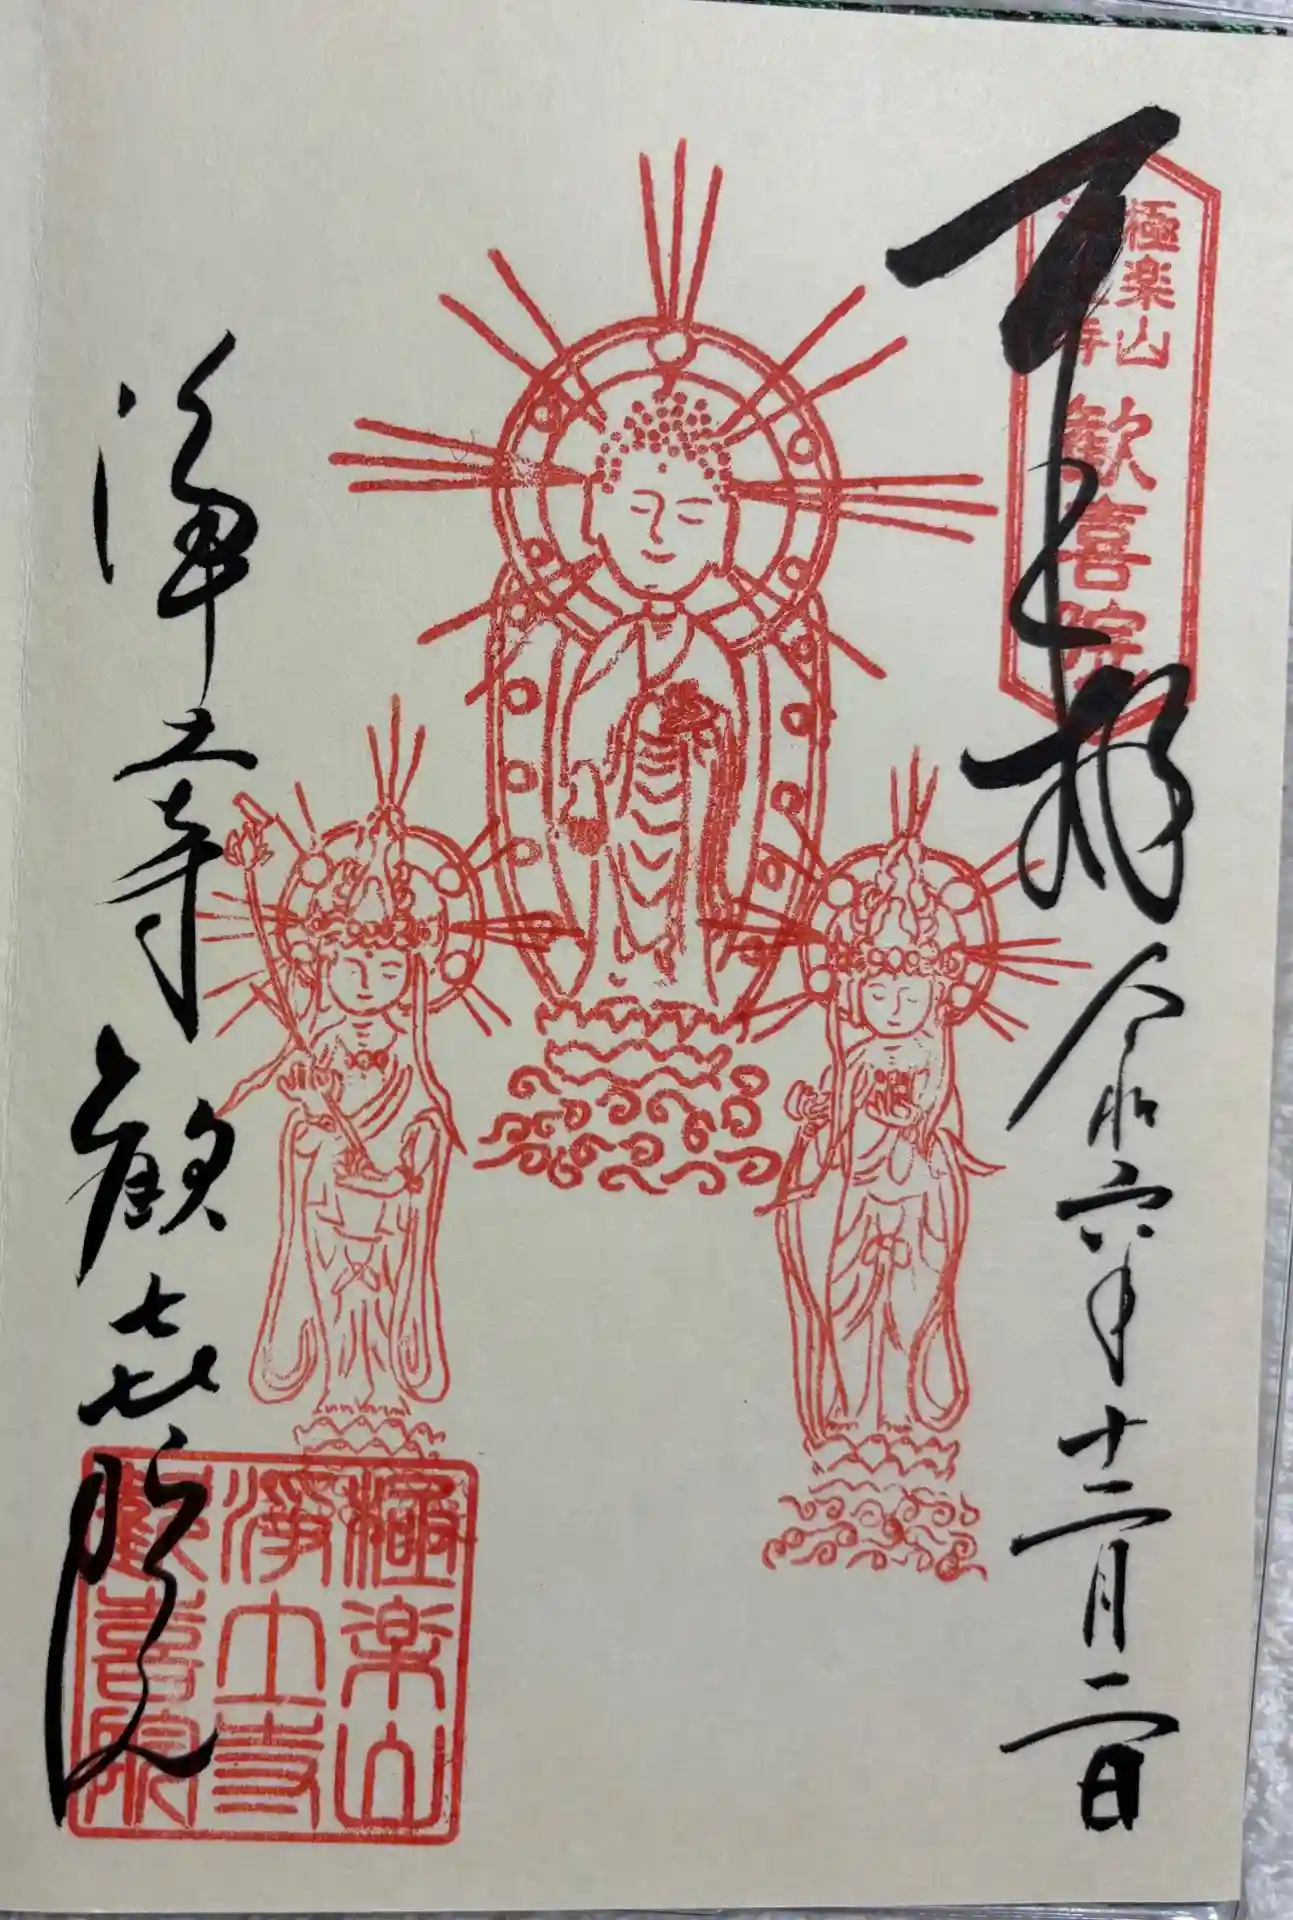 奉拝
令和六年十二月二日
極楽山
浄土寺
歓喜院
浄土寺
歓喜院
極楽山
浄土寺
歓喜院